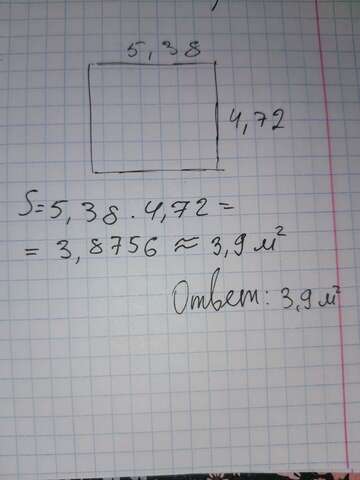 5,38
4,72
S=5,38·4,72=
=3,8756≈3,9м²
Ответ: 3,9м²